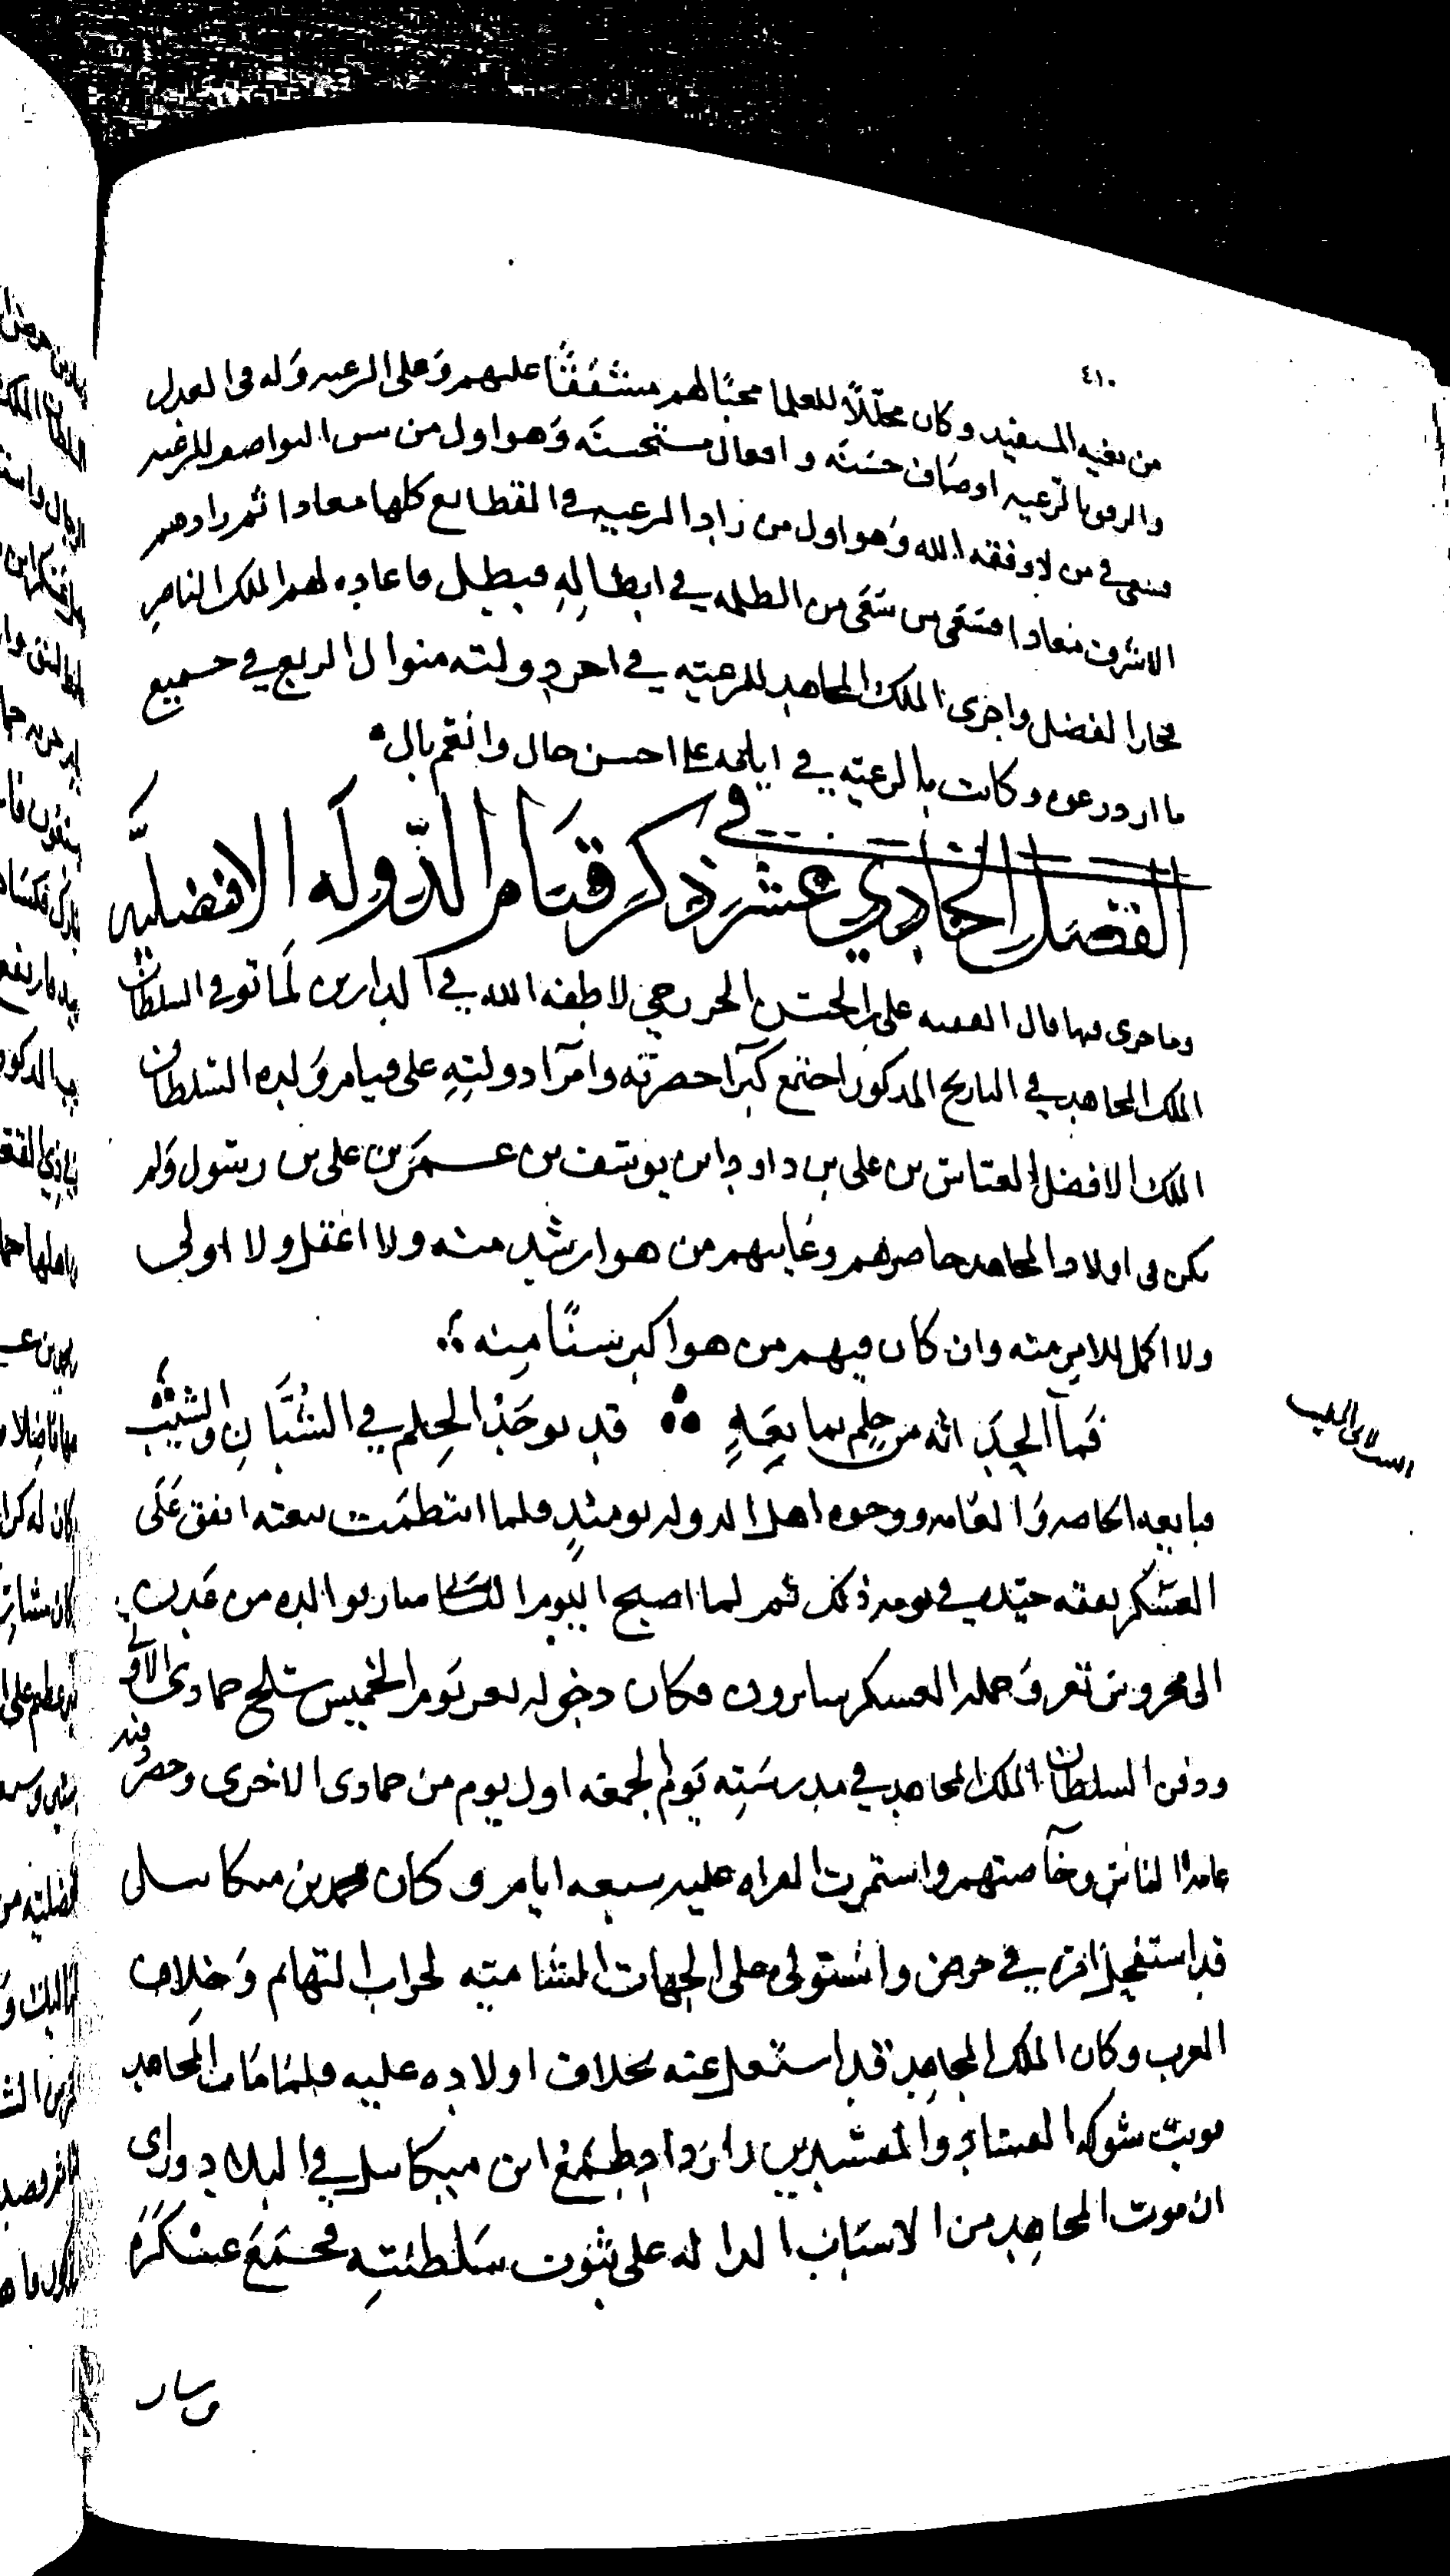 ٤١٠
من بغيه المستفيد وكان مجللاً للعلما محبًا لهم مشفقًا عليهم وَعلى الرعيه وَله فى العدل
والرفق بالرعيه اوصاف حسَنه وافعال مستحسنَه وَهو اول من سن
من لا وفقه الله وَهو اول من زاد الرعيه في القطايع كلها معادا ثم زادهم
الاشرف معادا من الظلمه في ابطالهِ فبطل ما عاده لهم الملك الناصرِ
الفضل واجرى الملك المجاهد للرعيّه في اخر دولته منوال الربع في جميع
ما وكانت الرعيّه في ايامه على احسن حال وانعم بال
الفصل الحادي عشر في ذكر قيَام الدّولَه الافضليَّه
وما جرى فيها قال الفقيه على بن الحسن الخزرجي لاطفه الله في الدارين لَما توفى السلطان
الملك المجاهد في التاريخ المذكور اجتمع كبرآ حضرته وامرآ دولتهِ على قيام وَلده السّلطان
الملك الافضل العبّاس بن على بن داود بن يوسف بن عمَر بن على بن رسول وَلم
يكن فى اولاد المجاهد حاضرهم وغايبهم من هو ارشد منه ولا اعقل ولا اولى
ولا اكمل للامرِ منه وان كان فيهم من هو اكبر سنًا مِنه
فَما الحِدَاثه من حِلم بمانِعَهٍ قد يوجَدُ الحِلم في الشُّبَّانِ والشِّيْبِ
فبايعه الخاصه وَالعَامه ووجوه اهل الدوله يومئذٍ فلما انتظمَت بيعته انفق عَلَى
العَسْكر نفقه جيّده في يومه ذلك ثم لما اصبح اليوم الثانى سار بوالده من عَدن
الى محروس تعز وَجمله العسكر سايرون فكان دخوله تعز يَوم الخميس سَلخ جمادى الاولى
ودفن السلطان الملك المجاهد في مدرسَتِه يَوم الجمعَه اول يوم من جمادى الاخرى وحضر دفنه
عامه الناس وخآصتهم واستمرت القراه عليه سبعه ايام وكان محمد بن ميكاييل
قد استفحل امرُه في حرض واسْتولى على الجهات الشاميّه لخراب التهايم وَخلاف
العرب وكان الملك المجاهد قد اشتغل عنه بخلاف اولاده عليه فلمّا مَات المجاهد
قويت شوكه الفسَاد والمفسدين وازدَاد طمعُ ابن ميكاييل في البلاد وراى
ان موت المجاهد من الاسبَاب الداله على ثبوت سَلطنتِه فجمَعَ عسْكرَهُ
وسار